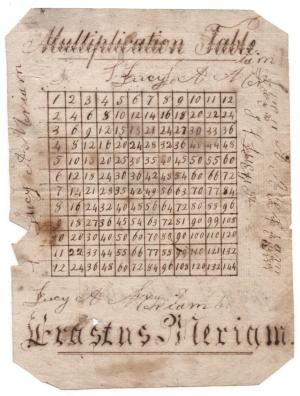 Multiplication Table
Lucy A Meriam
1 2 3 4 5 6 7 8 9 10 11 12
2 4 6 8 10 12 14 16 18 20 22 24
3 6 9 12 15 18 21 24 27 30 33 36
4 8 12 16 20 24 28 32 36 40 44 48
5 10 15 20 25 30 35 40 45 50 55 60
6 12 18 24 30 36 42 48 54 60 66 72
7 14 21 28 35 42 49 56 63 70 77 84
8 16 24 32 40 48 56 64 72 80 88 96
18 27 36 45 54 63 72 81 90 99 108
10 20 30 40 50 60 70 80 90 100 110 120
11 22 33 44 55 66 77 88 110 121 132
12 24 36 48 60 72 84 96 108 120 132 144
Lucy A Meriam
Lucy A Meriam
Erastus Meriam.